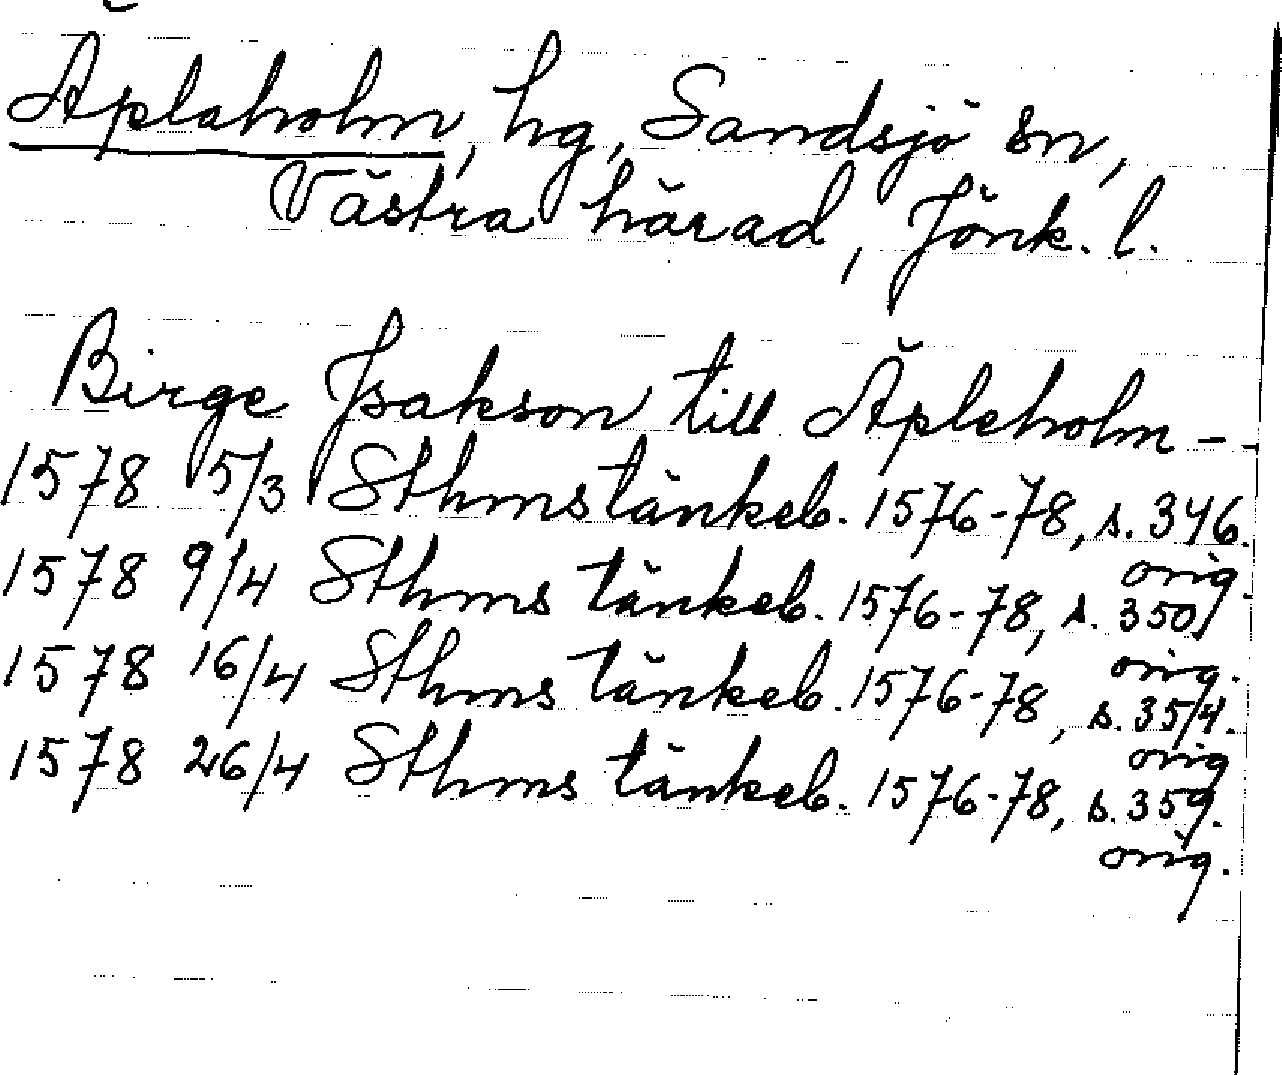 Äplaholm, hg, Sandsjö sn,
Västra härad, Jönk. l.
Birge Jsakson till Äpleholm - -
1578 5/3 Sthms tänkeb. 1576-78, s. 346.
orig.
1578 9/4 Sthms tänkeb. 1576-78, s. 350,
orig.
1578 16/4 Sthms tänkeb. 1576-78, s. 354.
orig
1578 26/4 Sthms tänkeb. 1576-78, s. 359.
orig.